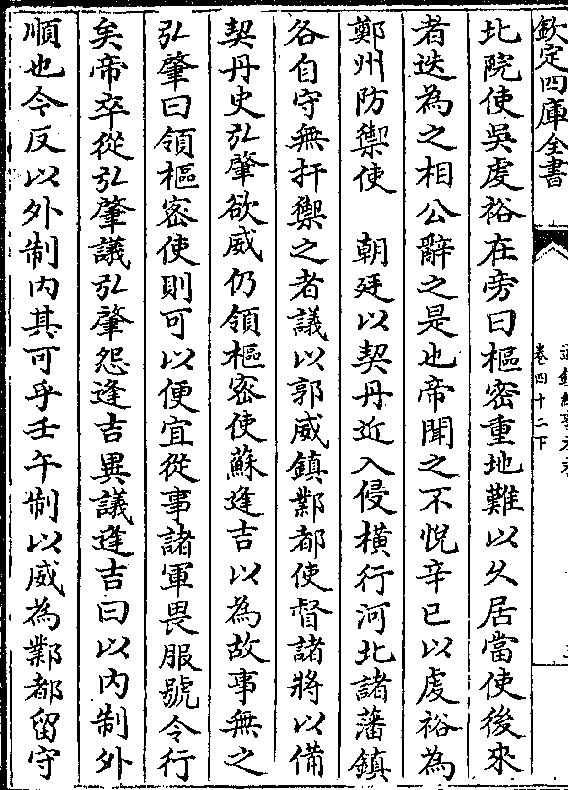 欽定四庫全書
卷四十二下
北院使吳䖍裕在旁曰樞密重地難以久居當使後來
者迭為之相公辭之是也帝聞之不悅辛巳以䖍裕為
鄭州防禦使　朝廷以契丹近入侵横行河北諸藩鎮
各自守無扞禦之者議以郭威鎮鄴都使督諸將以備
契丹史弘肇欲威仍領樞密使蘇逢吉以為故事無之
弘肇曰領樞密使則可以便宜從事諸軍畏服號令行
矣帝卒從弘肇議弘肇怨逢吉異議逢吉曰以内制外
順也今反以外制内其可乎壬午制以威為鄴都留守